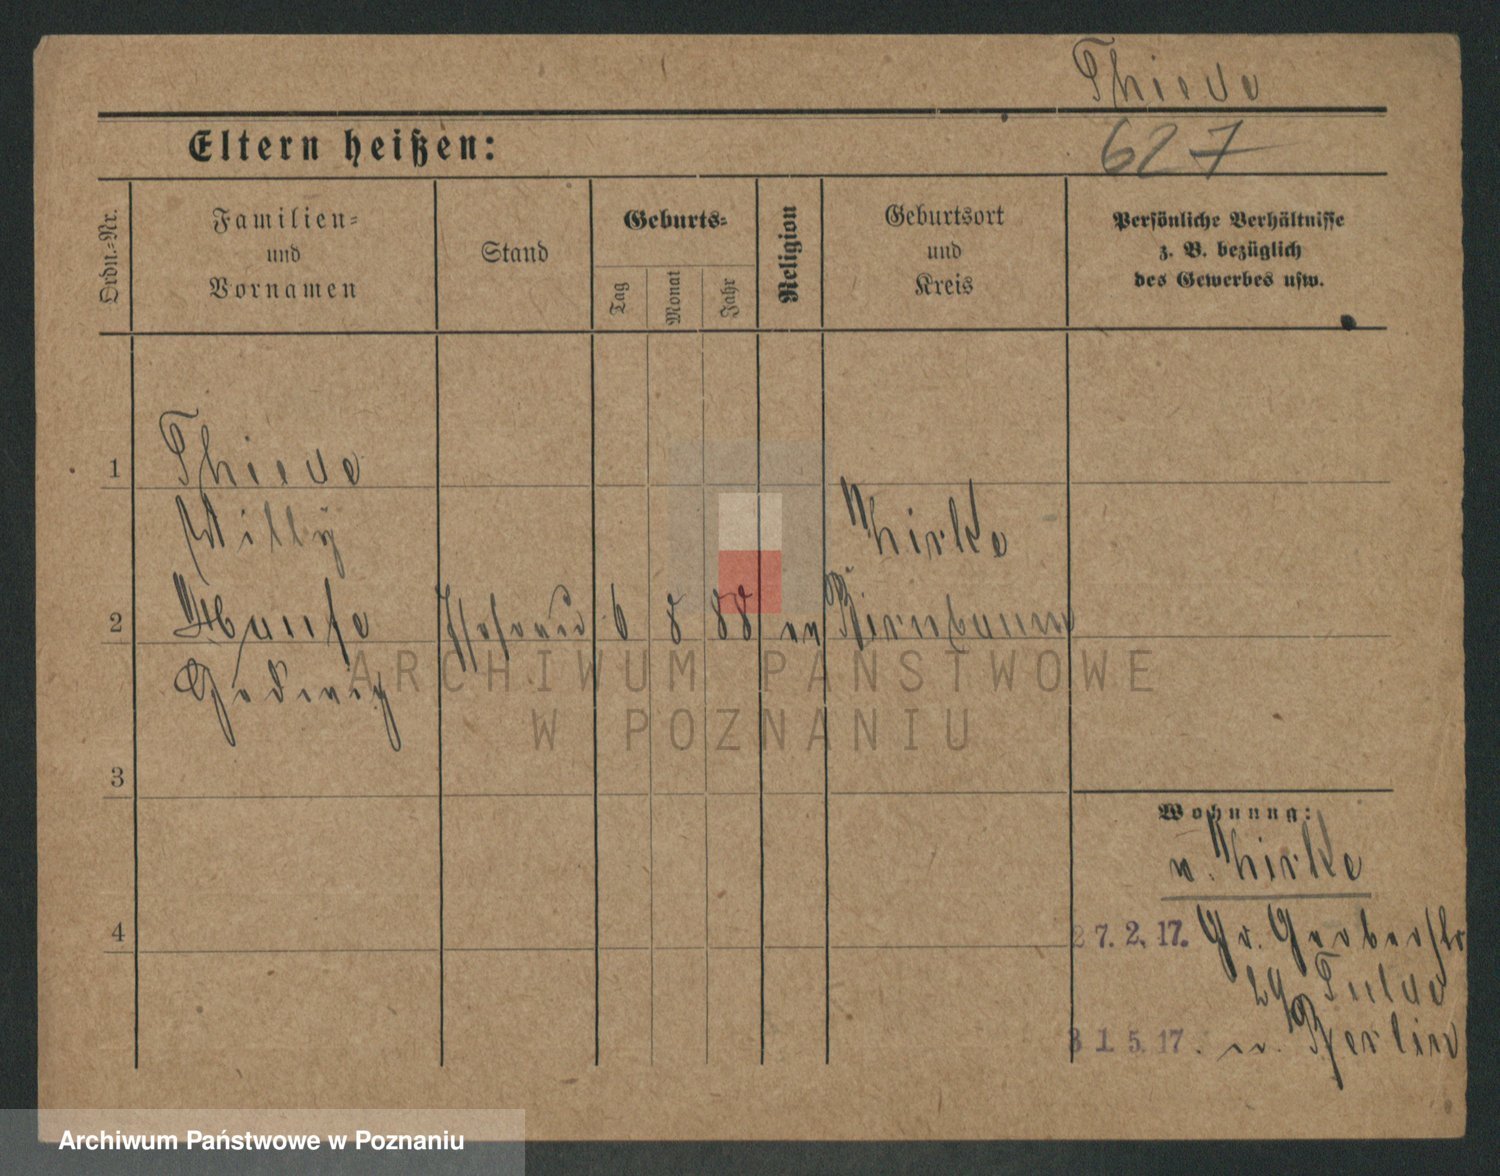 Thiede
Eltern heißen:
627
Ordn.-Nr.
Familien-
und
Vornamen
Stand
Geburts-
Tag
Monat
Jahr
Religion
Geburtsort
und
Kreis
Persönliche Verhältnisse
z. B. bezüglich
des Gewerbes usw.
1
Thiede
Willy
Zirke
2
Ehefrau 6 8 88 ev Birnbaum
Hedwig
3
Wohnung:
v. Zirke
4
27. 2. 17. Gr. Gerberstr
29
31. 5. 17. n. Berlin
ARCHIWUM PAŃSTWOWE
W POZNANIU
Archiwum Państwowe w Poznaniu